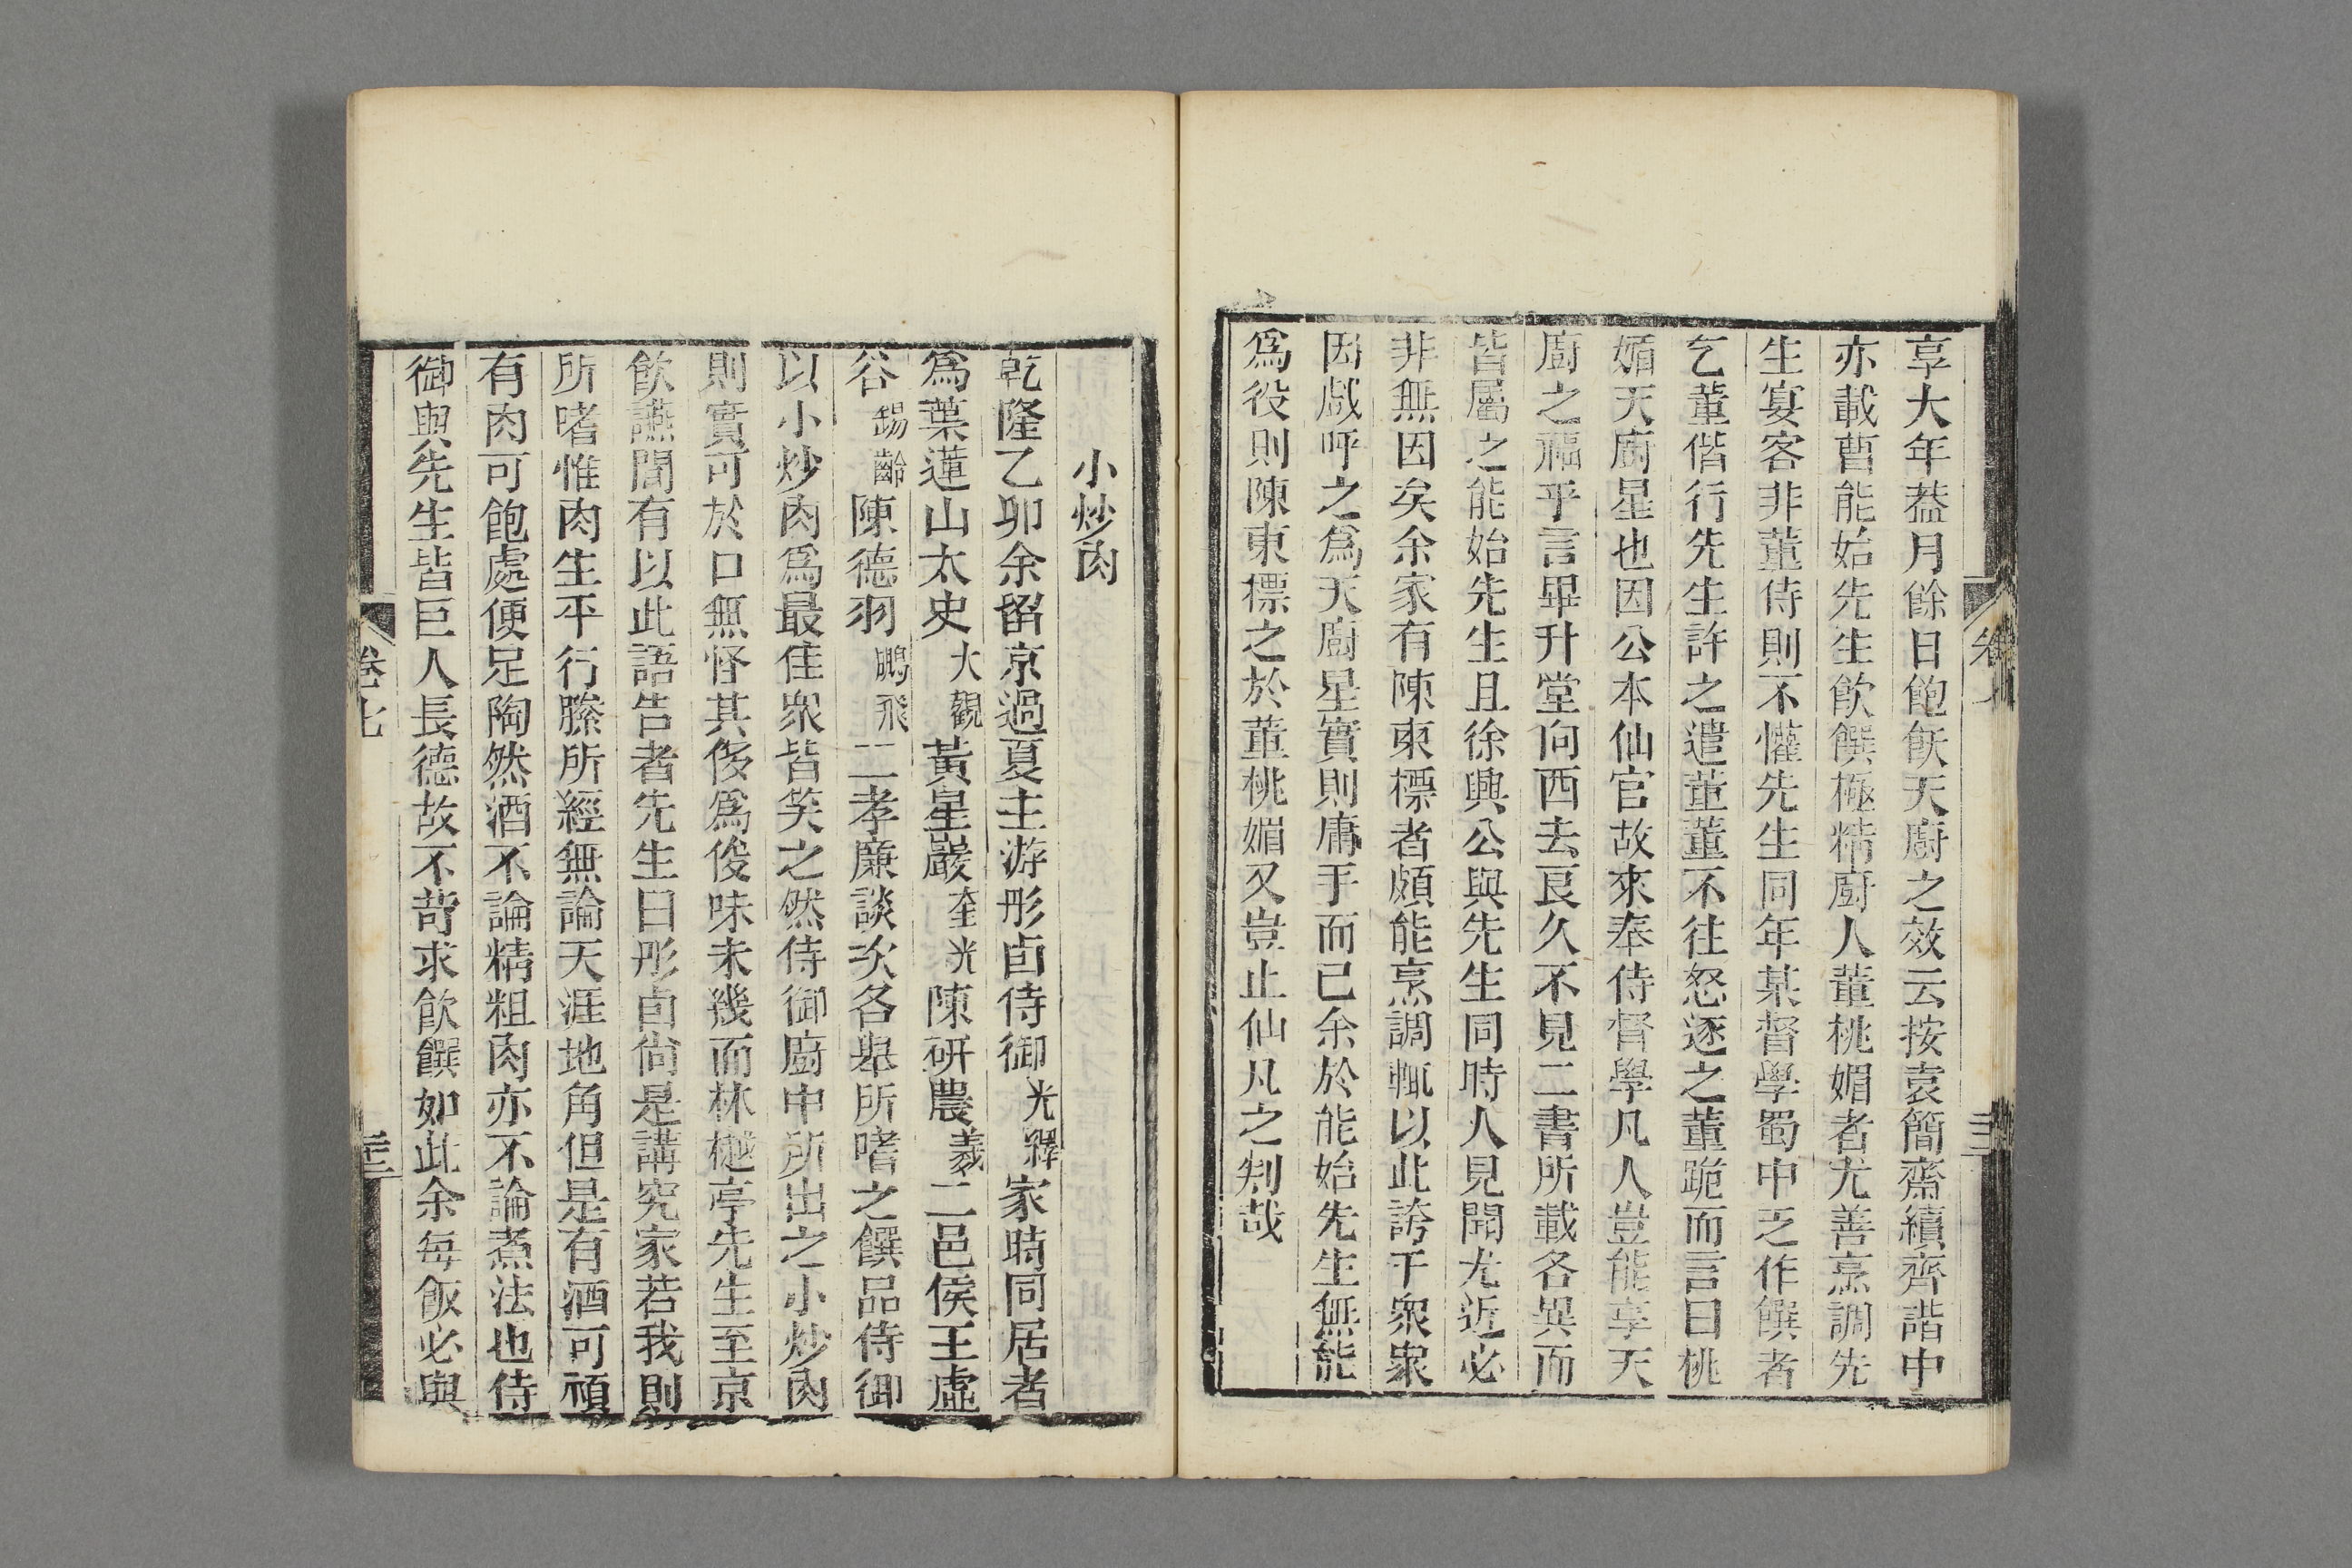 享大年葢月餘日飽飫天廚之效云按袁簡齋續齊諧中
亦載曹能始先生飲饌極精廚人董桃媚者尤善烹調先
生宴客非董侍則不懽先生同年某督學蜀中乏作饌者
乞董偕行先生許之遣董董不往怒逐之董跪而言曰桃
媚天廚星也因公本仙官故來奉侍督學凡人豈能享天
廚之福乎言畢升堂向西去良久不見二書所載各異而
皆屬之能始先生且徐興公與先生同時人見聞尤近必
非無因矣余家有陳東標者頗能烹調輒以此誇于衆衆
因戲呼之為天廚星實則庸手而已余於能始先生無能
為役則陳東標之於董桃媚又豈止仙凡之判哉
小炒肉
乾隆乙卯余留京過夏主游彤卣侍御光繹家時同居者
為葉蓮山太史大觀黃星巖奎光陳研農羲二邑侯王虛
谷錫齡陳德羽鵬飛二孝廉談次各舉所嗜之饌品侍御
以小炒肉為最佳衆皆笑之然侍御廚中所出之小炒肉
則實可於口無怪其侈為俊味未幾而林樾亭先生至京
飲讌間有以此語告者先生曰彤卣尙是講究家若我則
所嗜惟肉生平行縢所經無論天涯地角但是有酒可頫
有肉可飽處便足陶然酒不論精粗肉亦不論煮法也侍
御與先生皆巨人長德故不苛求飲饌如此余每飯必與
卷七